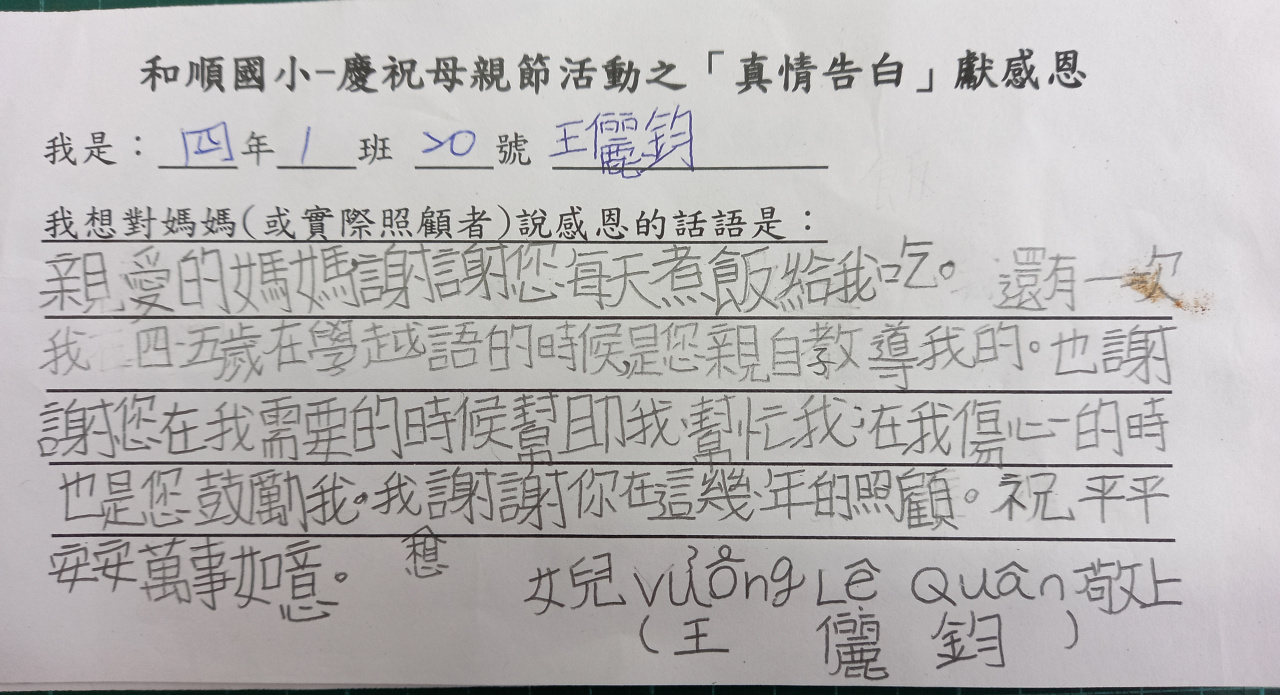 和順國小-慶祝母親節活動之「真情告白」獻感恩
我是：四年1班20號 王儷鈞
我想對媽媽(或實際照顧者)說感恩的話語是：
親愛的媽媽,謝謝您每天煮飯給我吃。還有一次
我四、五歲在學越語的時候,是您親自教導我的。也謝
謝您在我需要的時候幫助我、幫忙我,在我傷心的時
也是您鼓勵我。我想謝謝你在這幾年的照顧。祝平平
安安萬事如意。
女兒 Vương Lê Quân 敬上
(王 儷 鈞)